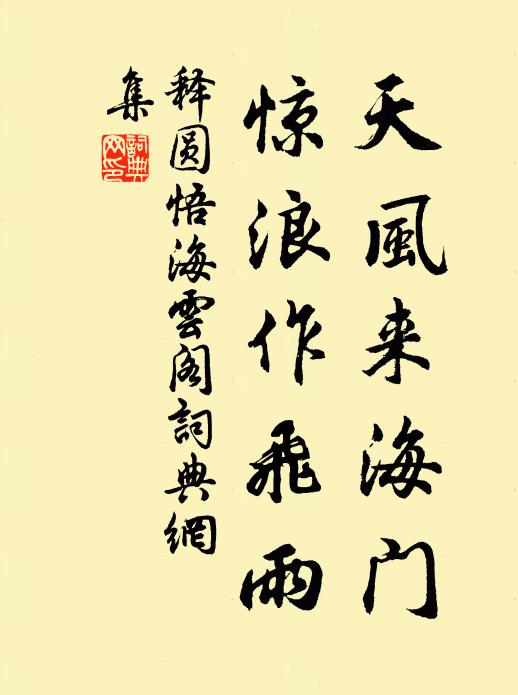 天風来海门
惊浪作飛雨
释圆悟海雲阁詞典網
集
詞典网印